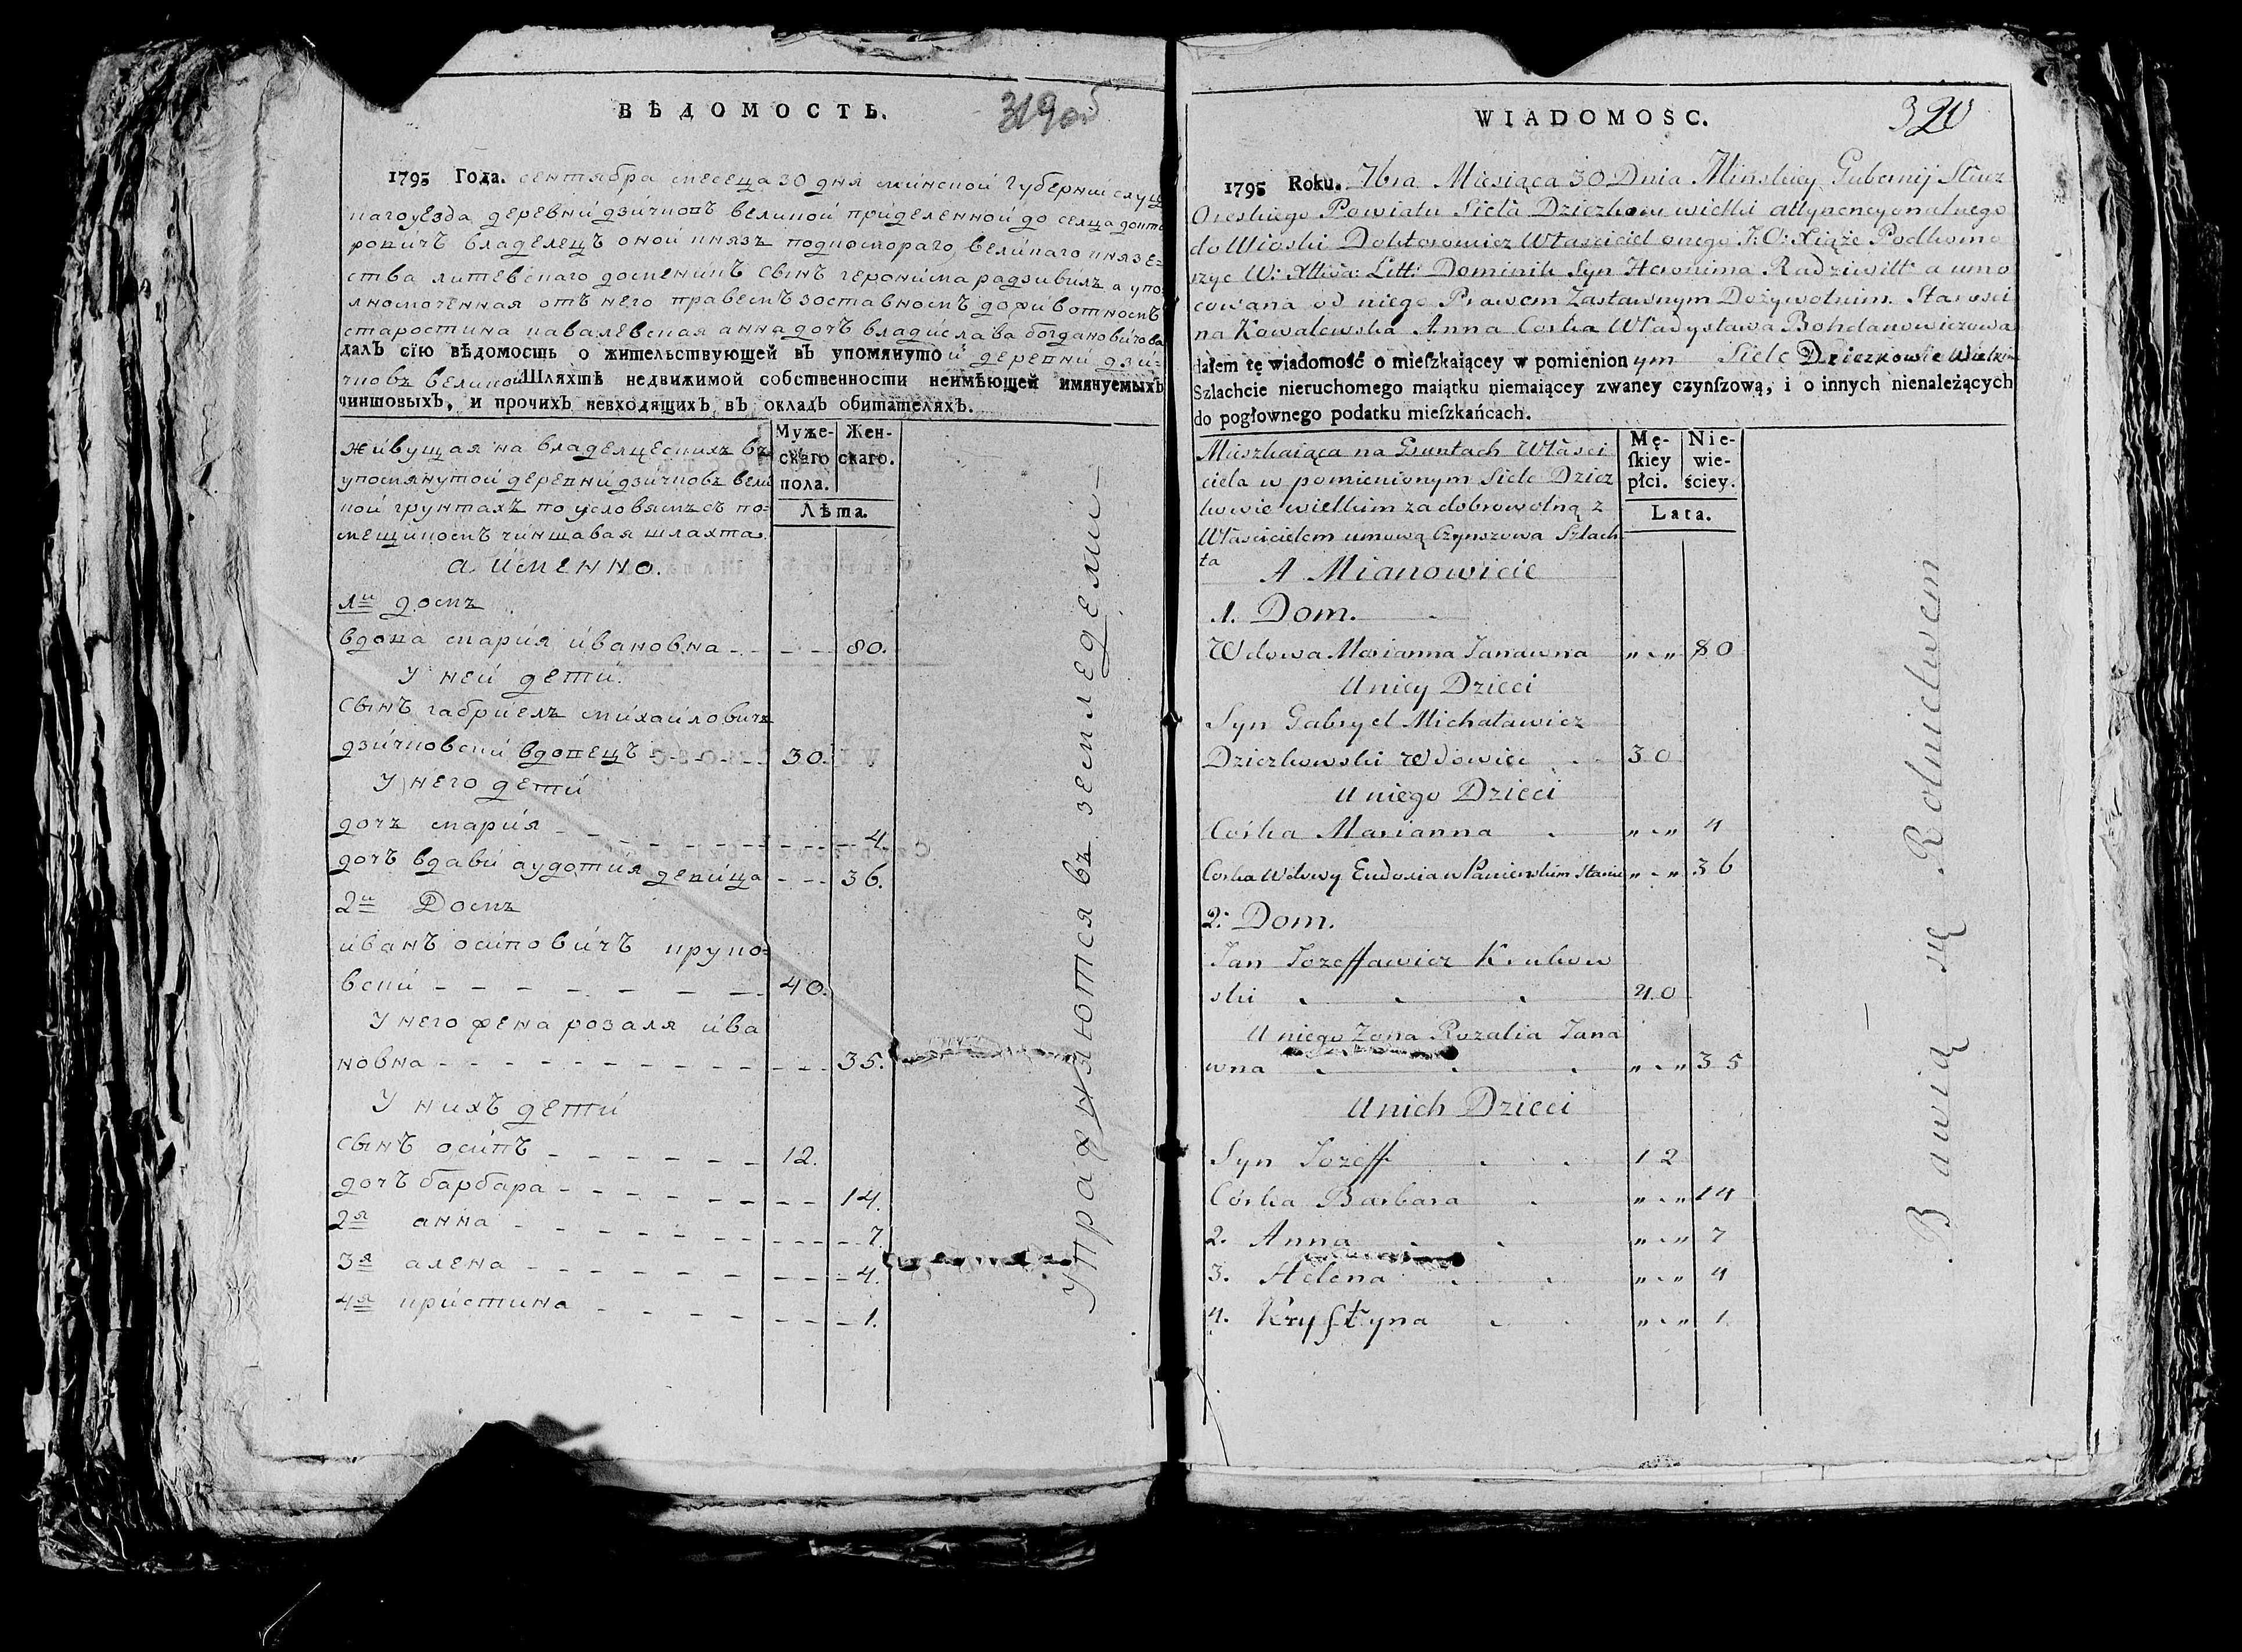 ВѢДОМОСТЬ.
319об
1795 Года. сентября месеца 30 дня минской губернии слуц
кого уезда деревни дзичковъ великой приделенной до селца докто
ровичъ владелецъ оной князъ подкомораго великаго княже=
ства литевскаго доменикъ сынъ геронима радзивилъ а упо
лномоченная отъ него правемъ зоставномъ доживотнемъ
старостина кавалевская анна дочъ владислава богдановичова
далъ сїю вѣдомость о жительствующей въ упомянутой деревни дзи=
чковъ великой Шляхтѣ недвижимой собственности неимѣющей имянуемыхъ
чиншовыхъ, и прочихъ невходящихъ въ окладъ обитателяхъ.
Муже-скаго пола. Жен-скаго.
Лѣта.
живущая на владелческихъ въ
упомянутой деревни дзичковъ вели
кой грунтахъ по условямъ съ по=
мещикомъ чиншавая шляхта
а именно.
1й домъ
вдова мария ивановна 80.
У ней дети.
сынъ габриелъ михайловичъ
дзичковски вдовецъ 30.
У него дети
дочъ мария 4.
дочъ вдави аудотия девица 36.
2й Домъ
иванъ осиповичъ круко=
вски 40.
У него жена розаля ива
новна 35.
У нихъ дети
сынъ осипъ 12.
дочъ барбара 14.
2я анна 7.
3я алена 4.
4я кристина 1.
упражняются въ земледелии
WIADOMOSC.
320
1795 Roku. 7bra Miesiąca 30 Dnia Minskiey Gubernij Słuz
Oreskiego Powiatu Sieła Dziczkow wielki attynencyonalnego
do Wioski Doktorowicz Właściciel onego J: O: Xiąże Podkomo
rzyc W: Xttwa: Litt: Dominik Syn Heronima Radziwiłł a umo
cowana od niego Prawem Zastawnym Dożywotnim Starosci
na Kowalewska Anna Corka Władysława Bohdanowiczowa
dałem tę wiadomość o mieſzkaiącey w pomienionym Siele Dziczkowie Wielkim
Szlachcie nieruchomego maiątku niemaiącey zwaney czynſzową, i o innych nienależących
do pogłownego podatku mieſzkańcach.
Mę-ſkiey płci. Nie-wie-ściey.
Lata.
Mieszkaiąca na Gruntach Właści
ciela w pomienionym Siele Dzicz
kowie wielkim za dobrowolną z
Właścicielem umową Czynszowa Szlach
ta A Mianowicie
1. Dom.
Wdowa Marianna Janawna „ „ 80
U niey Dzieci
Syn Gabryel Michaławicz
Dziczkowski Wdowiec 30
U niego Dzieci
Córka Marianna „ „ 4
Corka Wdowy Eudoxia w Panienskim Stanie „ „ 36
2. Dom.
Jan Jozeffawicz Krukow
ski 40
U niego Zona Rozalia Jana
wna „ „ 35
U nich Dzieci
Syn Jozeff 12
Córka Barbara „ „ 14
2. Anna „ „ 7
3. Helena „ „ 4
4. Kryſtyna „ „ 1
Bawią się Rolnictwem